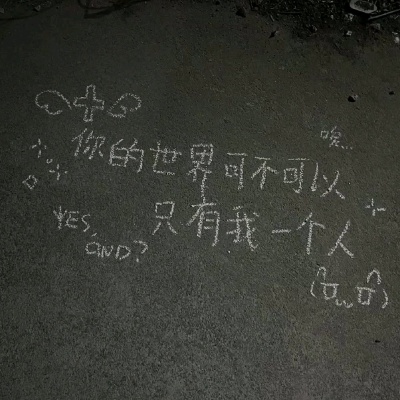 你的世界可不可以
唉...
只有我一个人
YES,
AND?